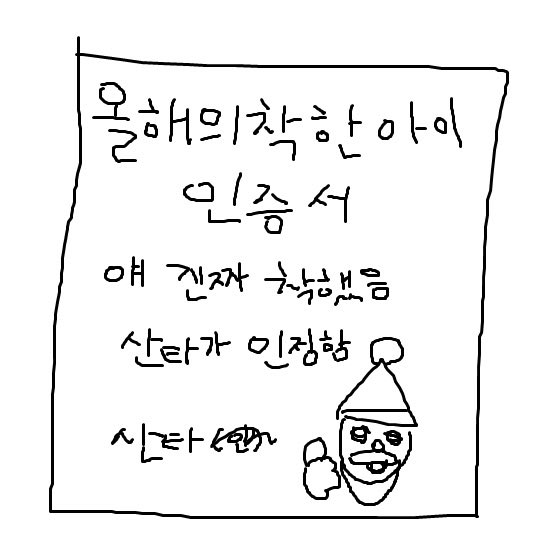 올해의착한아이
인증서
얘 진짜 착했음
산타가 인정함
산타